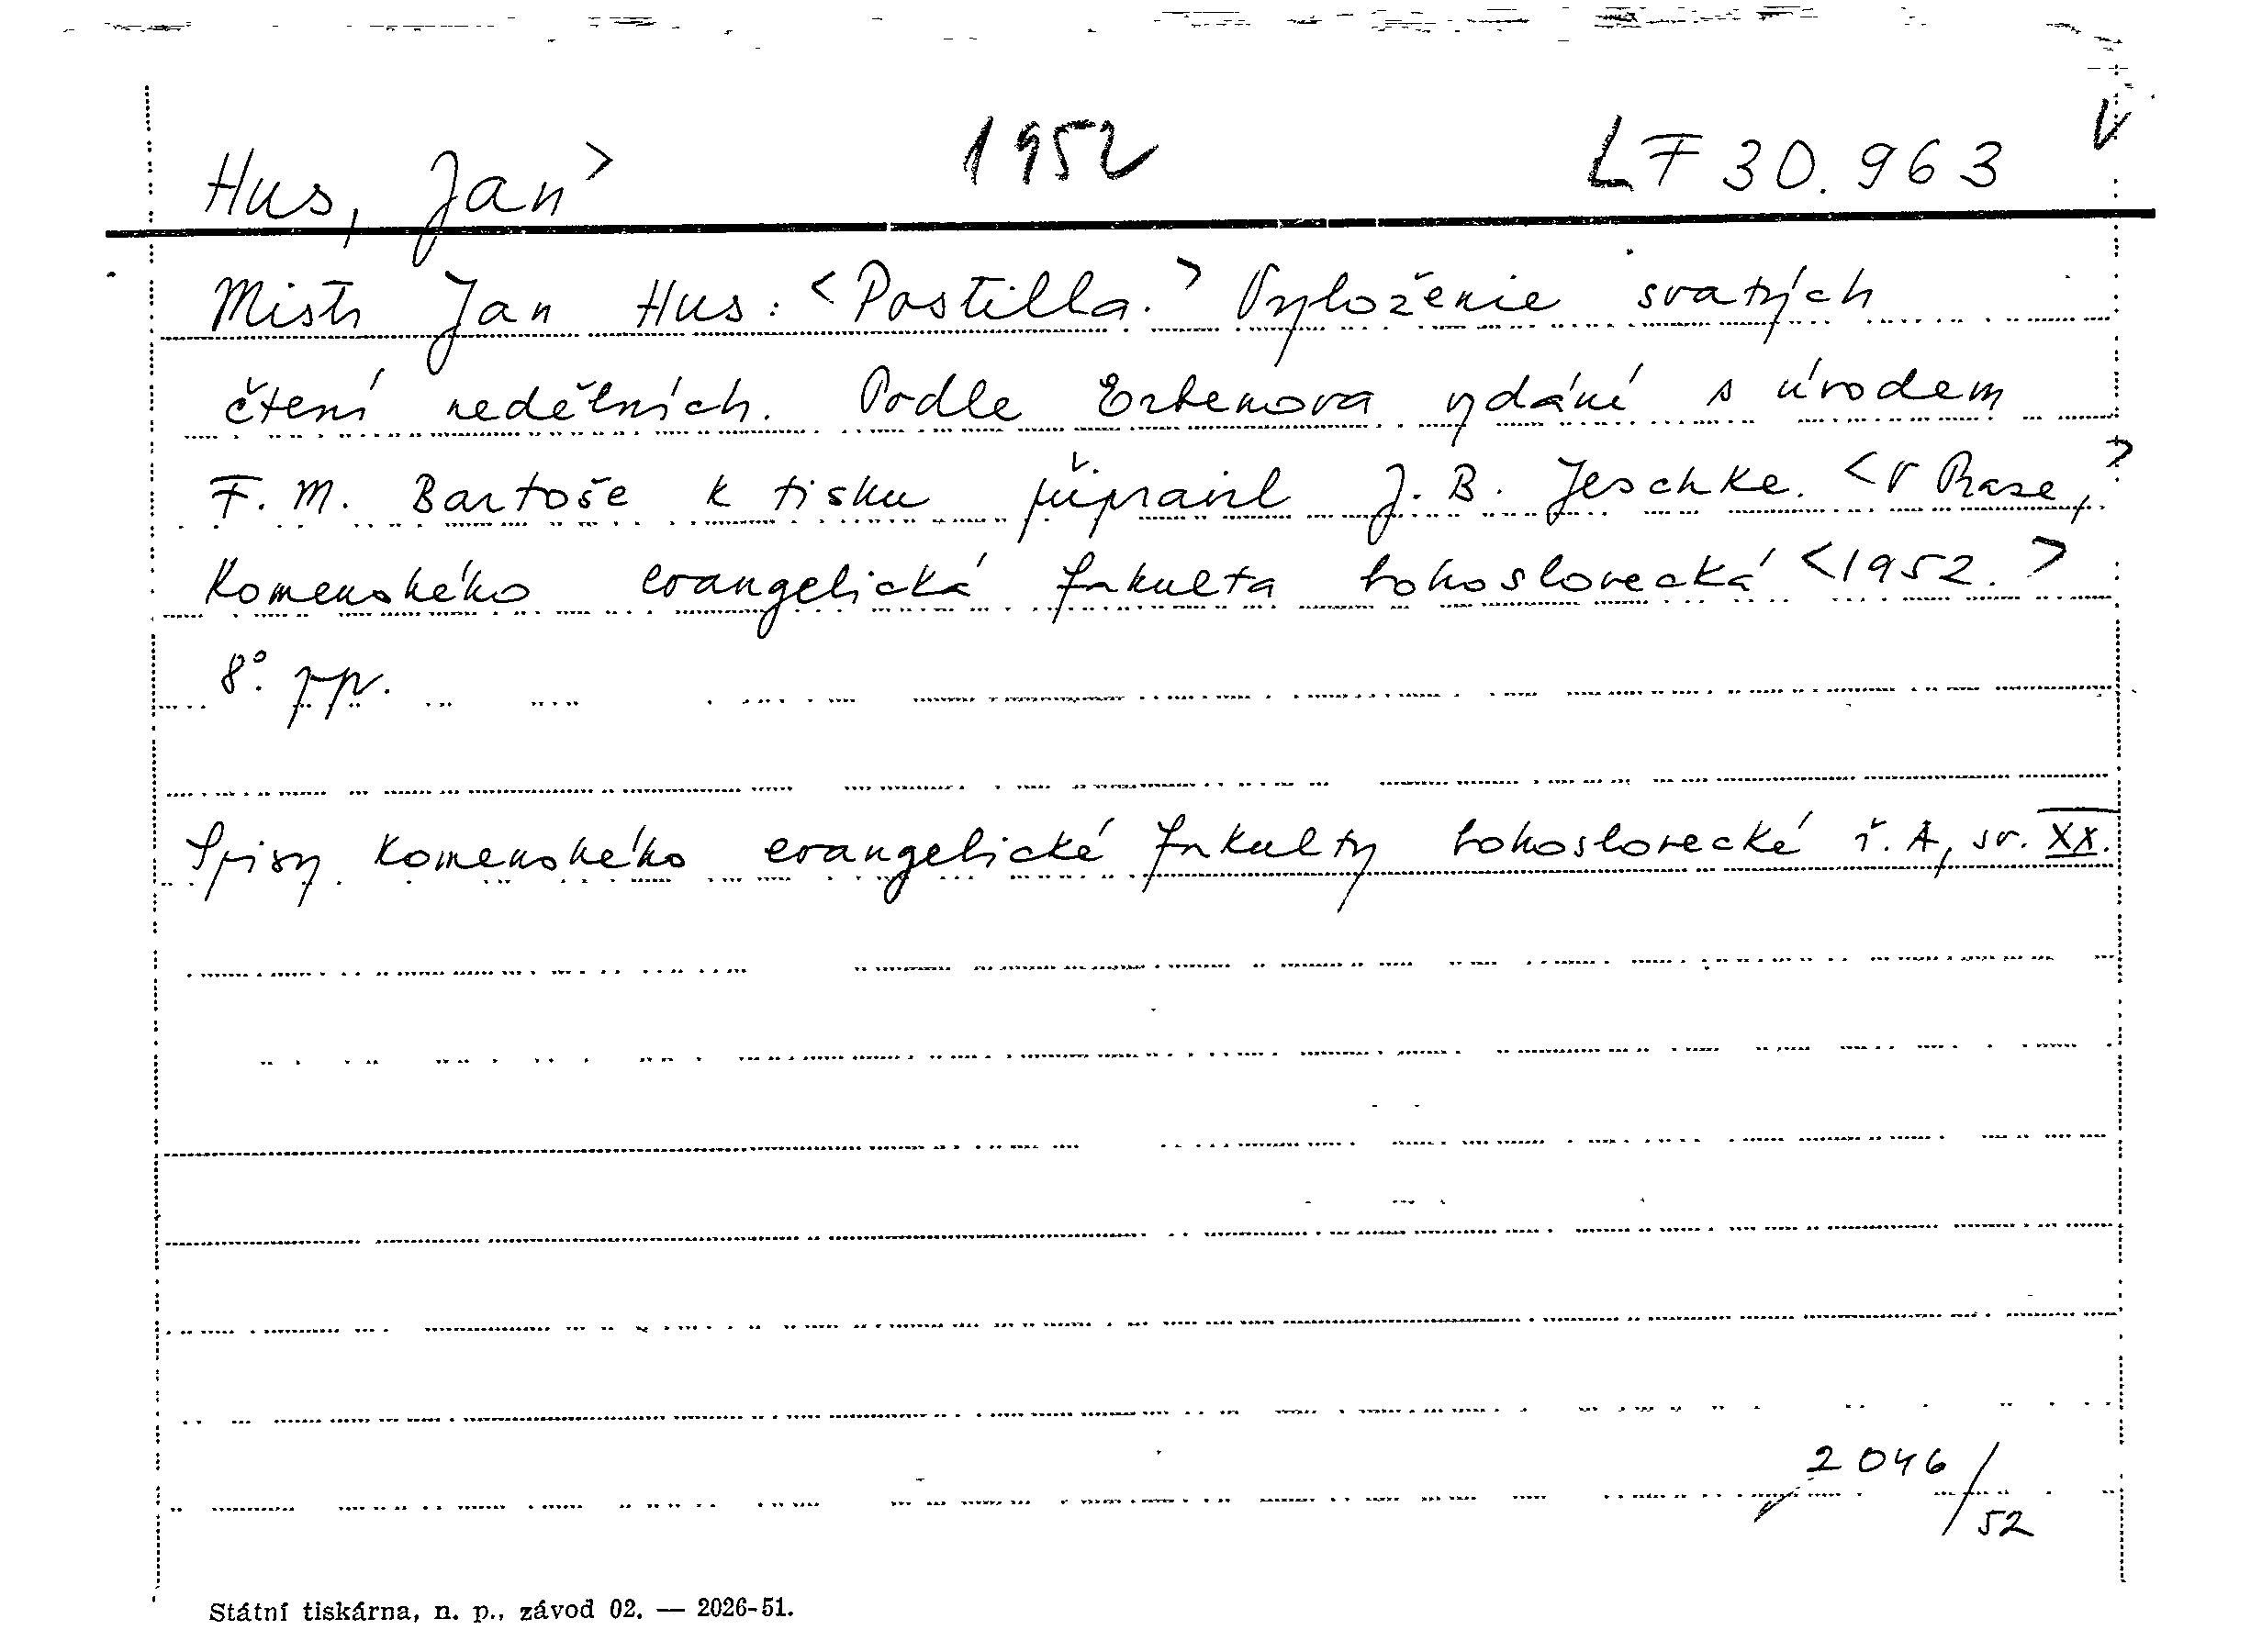 Hus, Jan> 1952 LF 30.963 V
Mistr Jan Hus: <Postilla.> Vyloženie svatých
čtení nedělních. Podle Erbenova vydání s úvodem
F. M. Bartoše k tisku připravil J. B. Jeschke. <V Praze,>
Komenského evangelická fakulta bohoslovecká <1952.>
8°. pp.
Spisy Komenského evangelické fakulty bohoslovecké ř. A, sv. XX.
2046/52
Státní tiskárna, n. p., závod 02. — 2026-51.